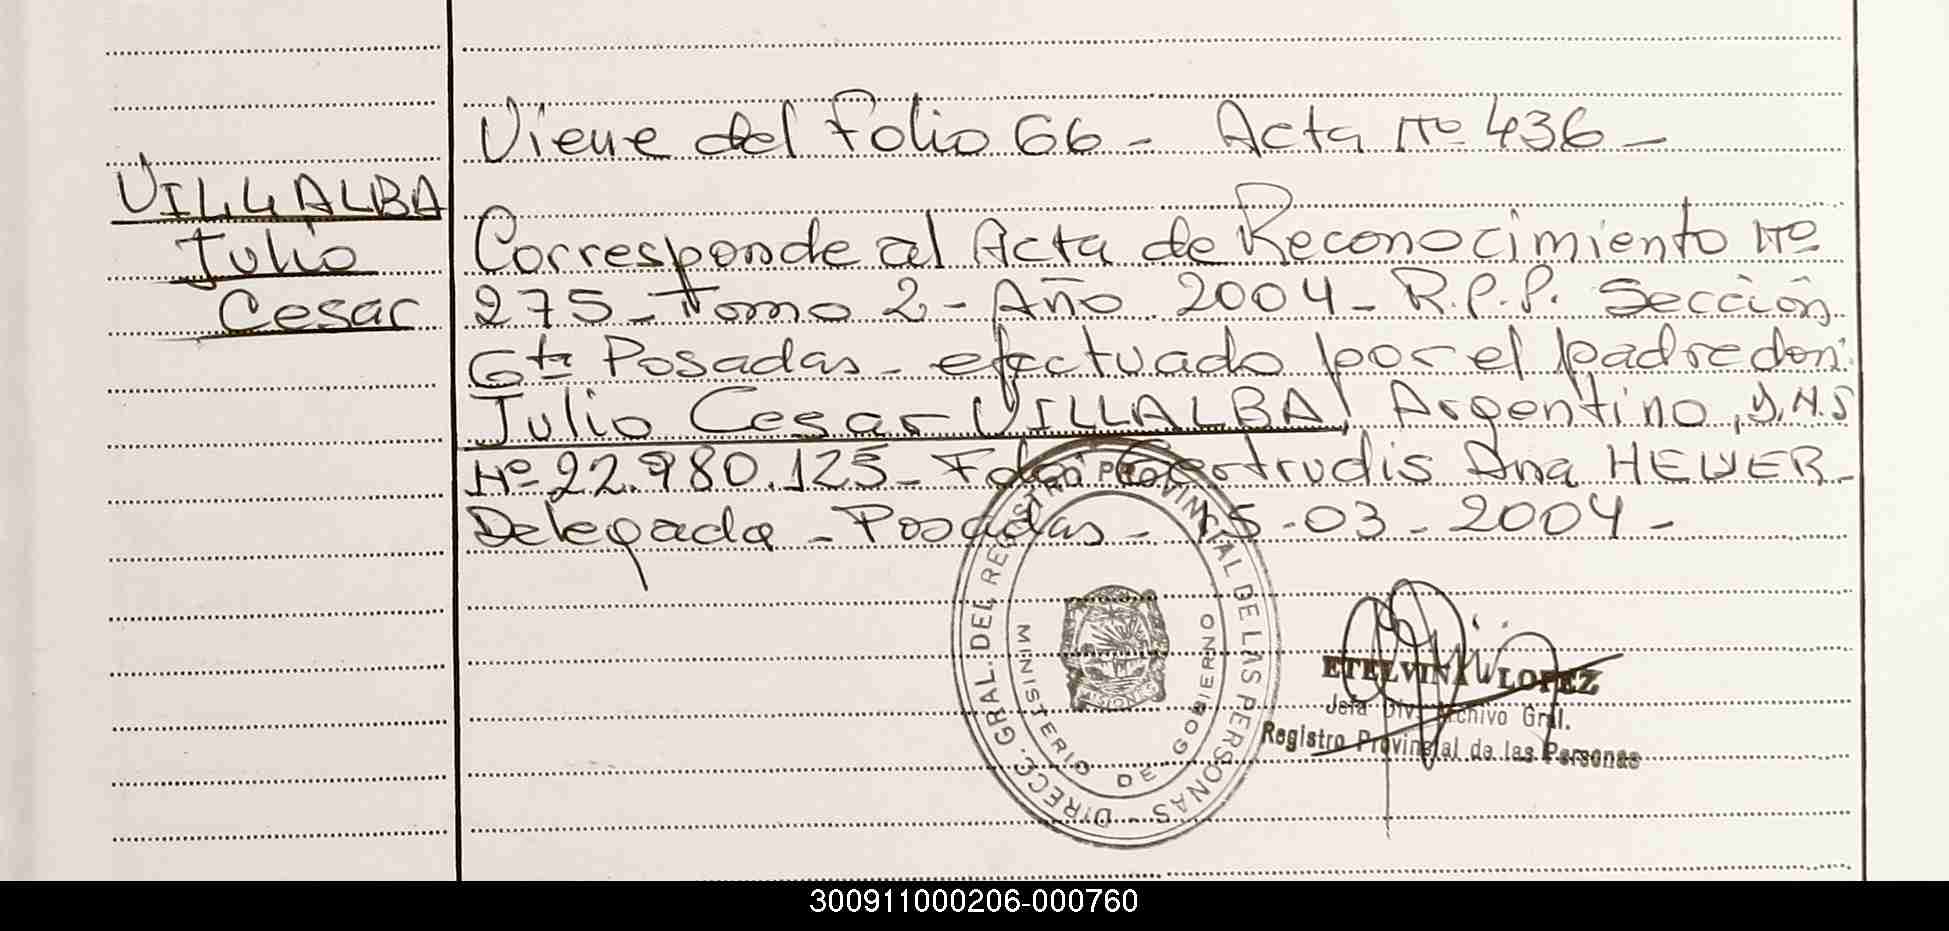 Viene del Folio 66 - Acta Nº 436 -
VILLALBA
Julio
Cesar
Corresponde al Acta de Reconocimiento Nº
275 - Tomo 2 - Año 2004 - R.P.P. Sección
6ta Posadas - efectuado por el padre don:
Julio Cesar VILLALBA, Argentino, D.N.I
Nº 22.980.125 - Fdo: Gertrudis Ana HEUER -
Delegada - Posadas - 15-03-2004 -
DIRECC. GRAL. DEL REGISTRO PROVINCIAL DE LAS PERSONAS -
MINISTERIO DE GOBIERNO
ETELVINA LOPEZ
Jefa Div. Archivo Gral.
Registro Provincial de las Personas
300911000206-000760